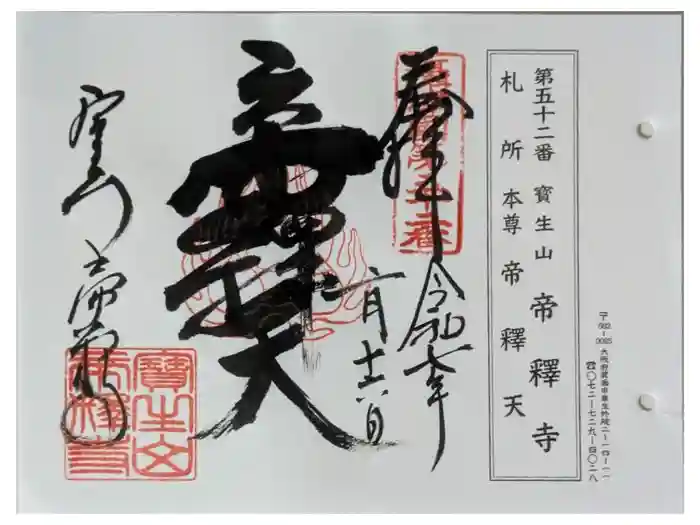 〒562-0025 大阪府箕面市粟生外院二-一四-一一
☎〇七二-七二九-四〇二八
第五十二番 寶生山 帝釋寺
札所本尊 帝釋天
奉拝 令和七年
二月十六日
帝釋天
宝生山 帝釈寺
寶生山
帝釋寺